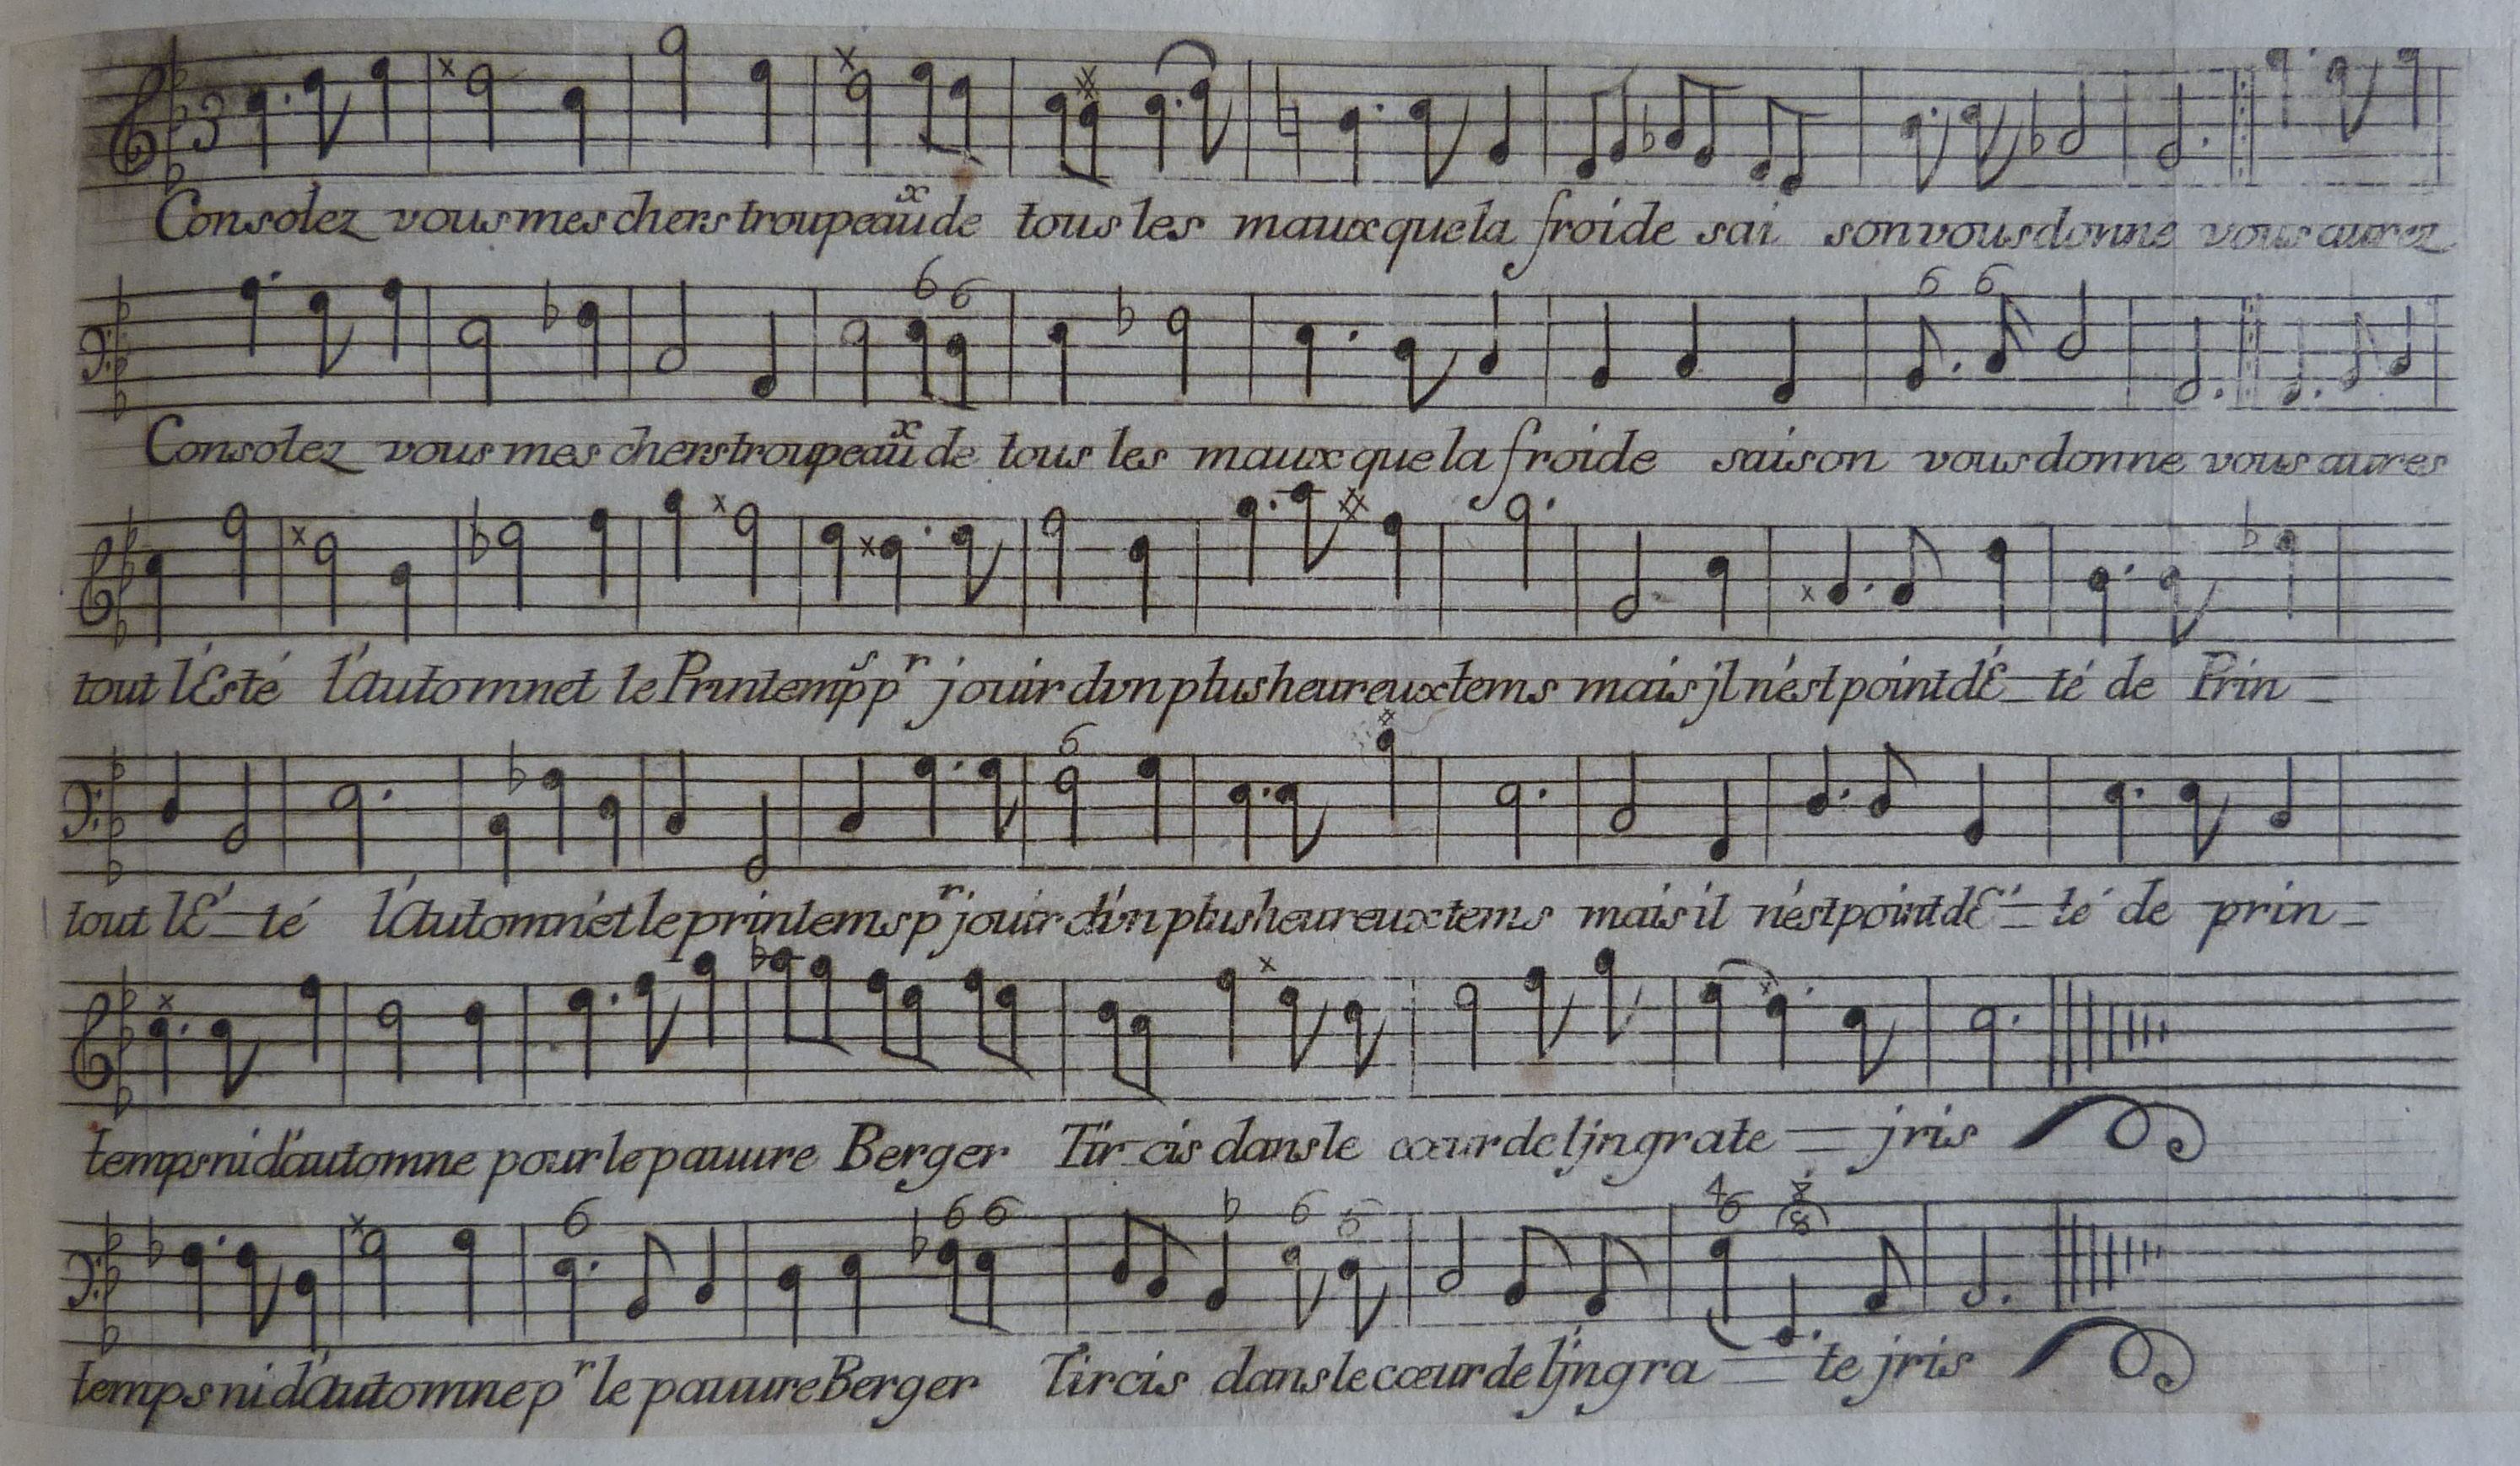 Consolez vous mes chers troupeaux de tous les maux que la froide sai son vous donne vous aurez
Consolez vous mes chers troupeaux de tous les maux que la froide saison vous donne vous aures
tout l'Esté l'automnet le Printemps pr jouir dvn plus heureux tems mais jl n'est point d'É-té de Prin-
tout l'É-té l'Automn'et le printems pr jouir d'vn plus heureux tems mais il n'est point d'É-té de prin-
temps ni d'automne pour le pauure Berger Tir-cis dans le cœur de l'jngrate - jris
temps ni d'Automne pr le pauure Berger Tircis dans le cœur de l'jngra - te jris